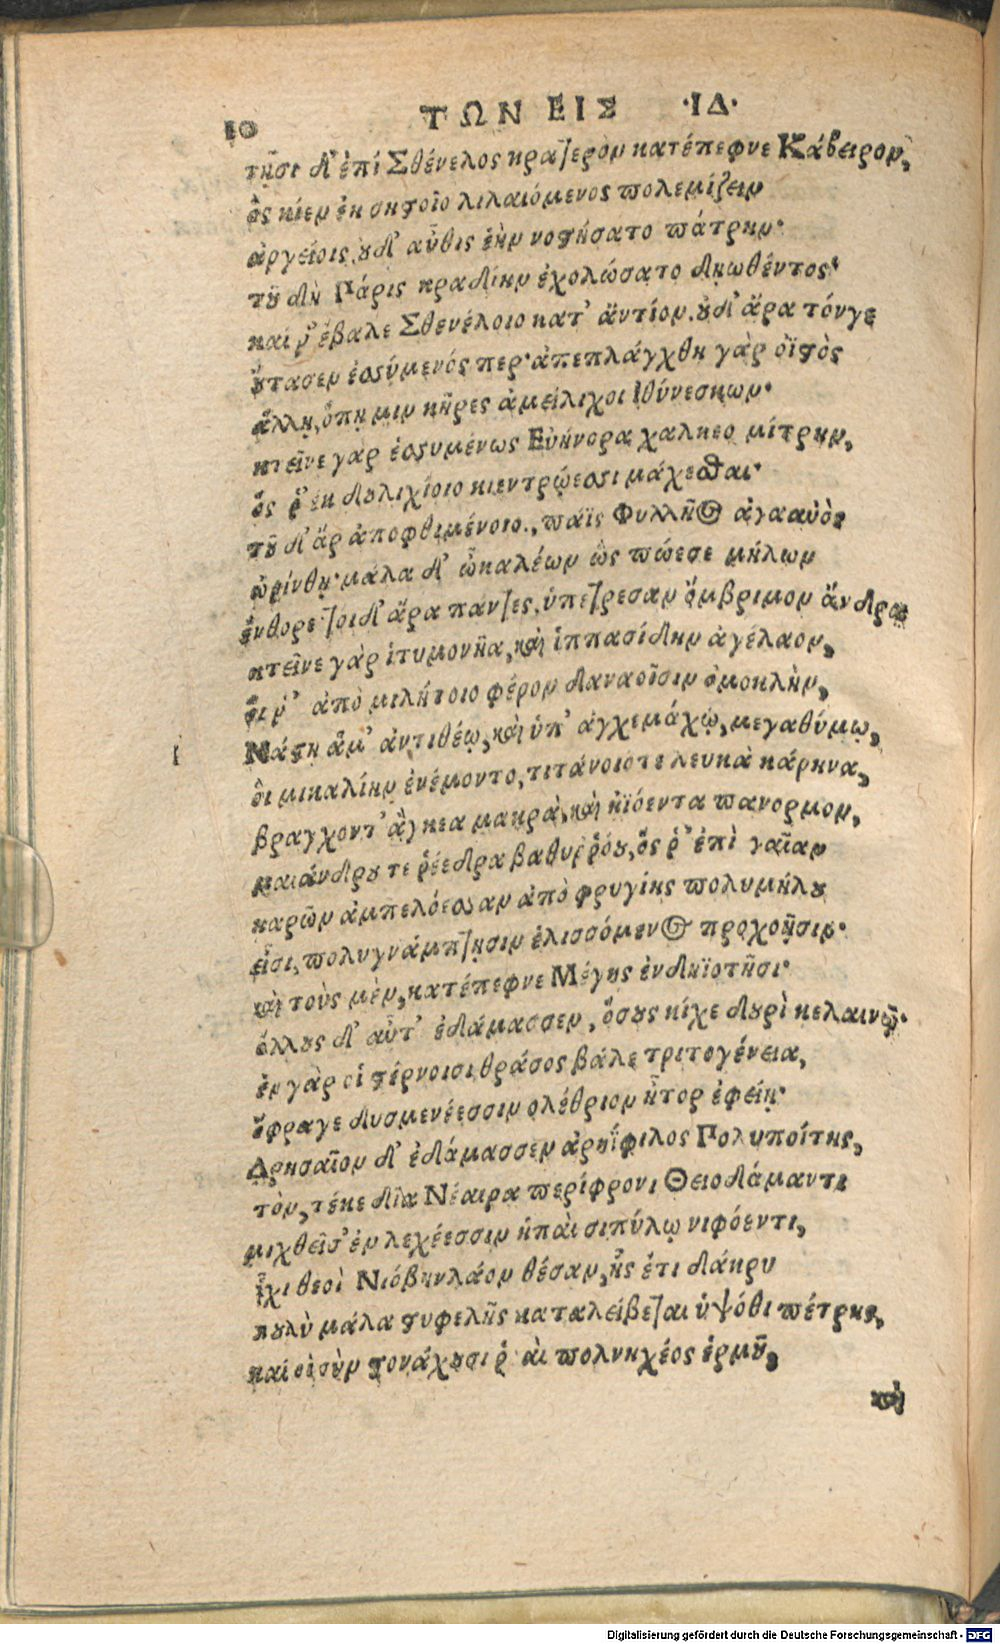 10 ΤΩΝ ΕΙΣ ·ΙΔ·
τῇσι δ' ἐπί Σθένελος κρατερὸν κατέπεφνε Κάβειρον,
ὃς κίεν ἐκ σηστοῖο λιλαιόμενος πολεμίζειν
ἀργείοις, οὐδ' αὖθις ἑὴν νοστήσατο πάτρην·
τοῦ δὴ Πάρις κραδίην ἐχολώσατο δῃωθέντος·
καί ῥ' ἔβαλε Σθενέλοιο κατ' ἄντίον. οὐδ' ἄρα τόνγε
οὔτασεν ἐσσύμενός περ· ἀπεπλάγχθη γὰρ ὀϊστὸς
ἄλλῃ, ὅπῃ μιν κῆρες ἀμείλιχοι ἰθύνεσκων·
κτεῖνε γὰρ ἐσσυμένως Εὐήνορα χαλκεο μίτρην,
ὅς ῥ' ἐκ δουλιχίοιο κιεν τρώεσσι μάχεσθαι·
τοῦ δ' ἄρ ἀποφθιμένοιο., πάϊς Φυλλῆος ἀγααὐὸς
ὠρίνθη· μάλα δ' ὦκα λέων ὣς πώεσε μήλων
ἔνθορε· τοι δ' ἄρα πάντες, ὑπετρεσαν ὄμβριμον ἄνδρα
κτεῖνε γὰρ ἰτυμονῆα, καὶ ἱππασίδην ἀγέλαον,
οἵ ῥ' ἀπὸ μιλήτοιο φέρον δαναοῖσιν ὁμοκλὴν,
Νάστη ἅμ' ἀντιθέῳ, καὶ ὑπ' ἀγχεμάχῳ, μεγαθύμῳ,
ὃι μικαλίην ἐνέμοντο, τιτάνοιοτε λευκὰ κάρηνα,
βραγχοντ' ἄγκεα μακρὰ, καὶ ἠϊόεντα πανορμον,
μαιάνδρου τε ῥέεδρα βαθυῤῥόου, ὅς ῥ' ἐπὶ γαῖαν
καρῶν ἀμπελόεσσαν ἀπὸ φρυγίης πολυμήλου
εἶσι, πολυγνάμπτῃσιν ἑλισσόμενος προχοῇσιν·
καὶ τοὺς μὲν, κατέπεφνε Μέγης ἐν δηϊοτῆσι·
ἄλλους δ' αὖτ' ἐδάμασσεν, ὅσους κίχε δουρὶ κελαινῷ·
ἐν γὰρ οἱ στέρνοισι θράσος βάλε τριτογένεια,
ὄφραγε δυσμενέεσσιν ολέθριον ἦτορ ἐφείη·
Δρησαῖον δ' ἐδάμασσεν ἀρηΐφιλος Πολυποίτης,
τὸν, τέκε δῖα Νέαιρα περίφρονι Θειοδάμαντι
μιχθεῖσ' ἐν λεχέεσσιν ὑπαὶ σιπύλῳ νιφόεντι,
ἧχι θεοὶ Νιόβην λάον θέσαν, ἧς ἔτι δάκρυ
πουλὺ μάλα στυφελῆς καταλείβεται ὑψόθι πέτρης,
καί οἱ σὺν στονάχουσι ῥ αι πολνηχέος ἑρμοῦ,
καὶ